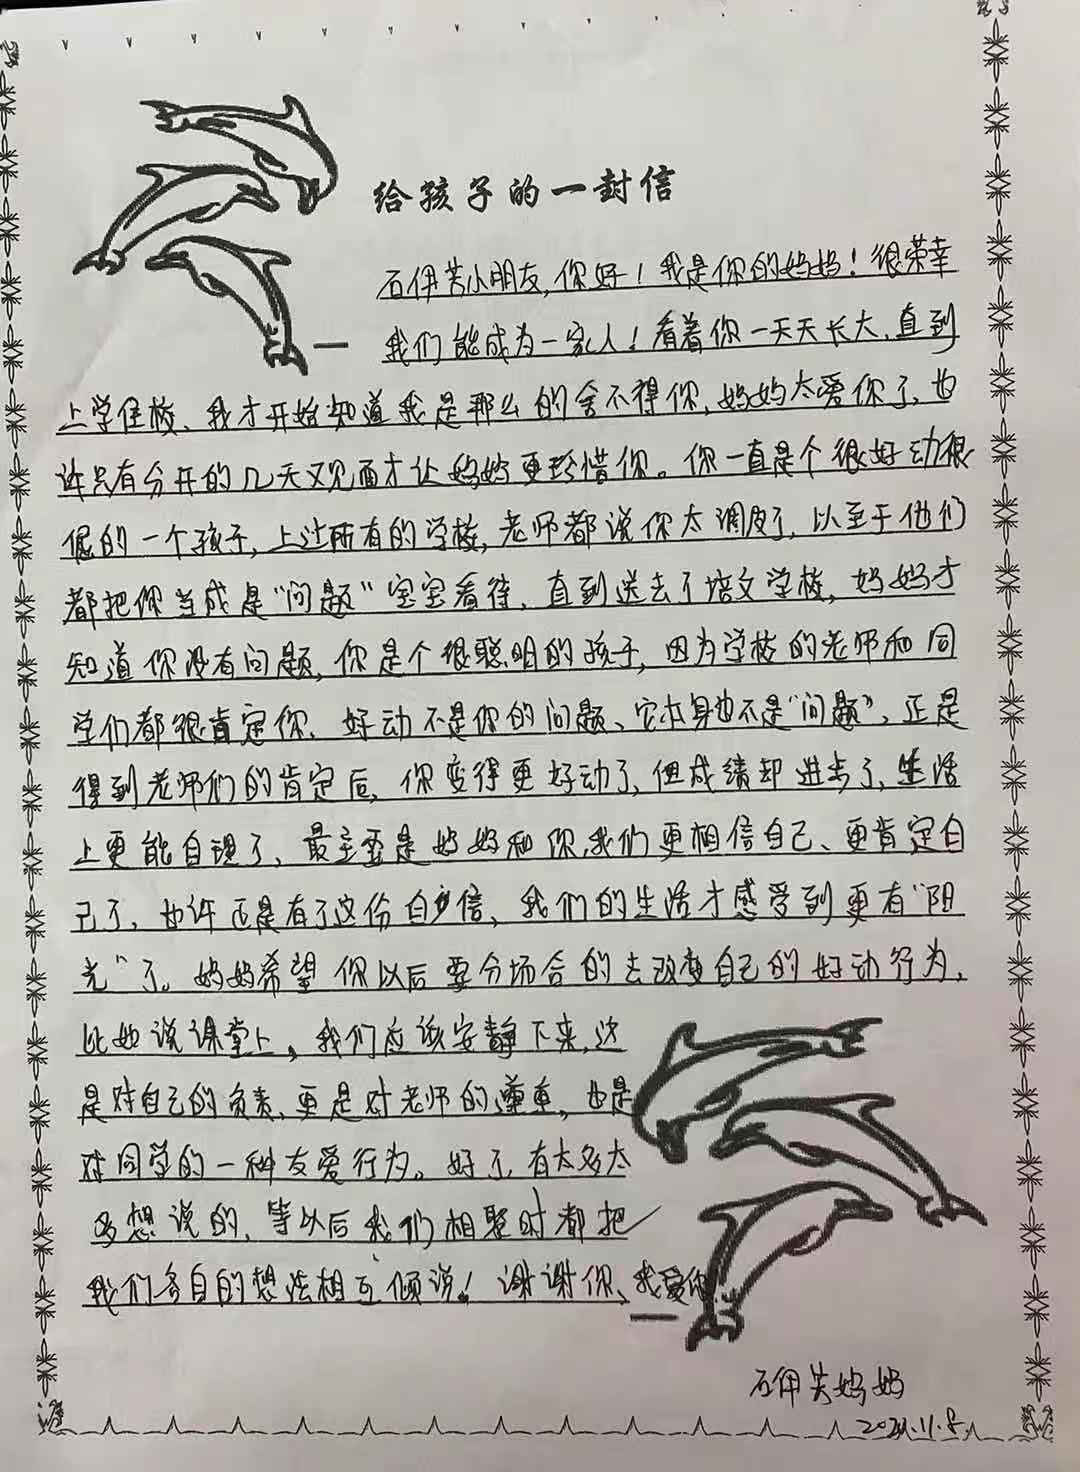 给孩子的一封信
石伊芙小朋友,你好！我是你的妈妈！很荣幸
我们能成为一家人！看着你一天天长大、直到
上学住校、我才开始知道我是那么的舍不得你,妈妈太爱你了、也
许只有分开的几天又见面才让妈妈更珍惜你。你一直是个很好动很
倔的一个孩子,上过所有的学校,老师都说你太调皮了、以至于他们
都把你当成是“问题”宝宝看待、直到送去了培文学校,妈妈才
知道你没有问题,你是个很聪明的孩子,因为学校的老师和同
学们都很肯定你、好动不是你的问题、它本身也不是“问题”、正是
得到老师们的肯定后,你变得更好动了,但成绩却进步了、生活
上更能自理了、最主要是妈妈和你,我们更相信自己、更肯定自
己了、也许正是有了这份自信、我们的生活才感受到更有“阳
光”了。妈妈希望你以后要分场合的去改变自己的好动行为,
比如说课堂上,我们应该安静下来,这
是对自己的负责,更是对老师的尊重,也是
对同学的一种友爱行为。好了,有太多太
多想说的,等以后我们相聚时都把
我们各自的想法相互倾说！谢谢你、我爱你
石伊芙妈妈
11.8